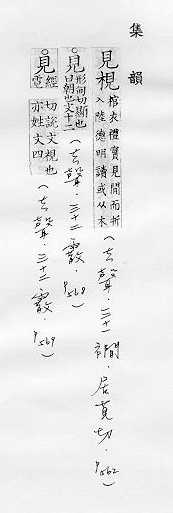 集韻
見梘 棺衣禮實見閒而折
入陸德明讀或从木
(去聲·三十一襉·居莧切·P562)
○見 形甸切顯也
日朝也文十二
(去聲·三十二霰·P568)
○見 經電切說文視也
亦姓文四
(去聲·三十二霰·P569)